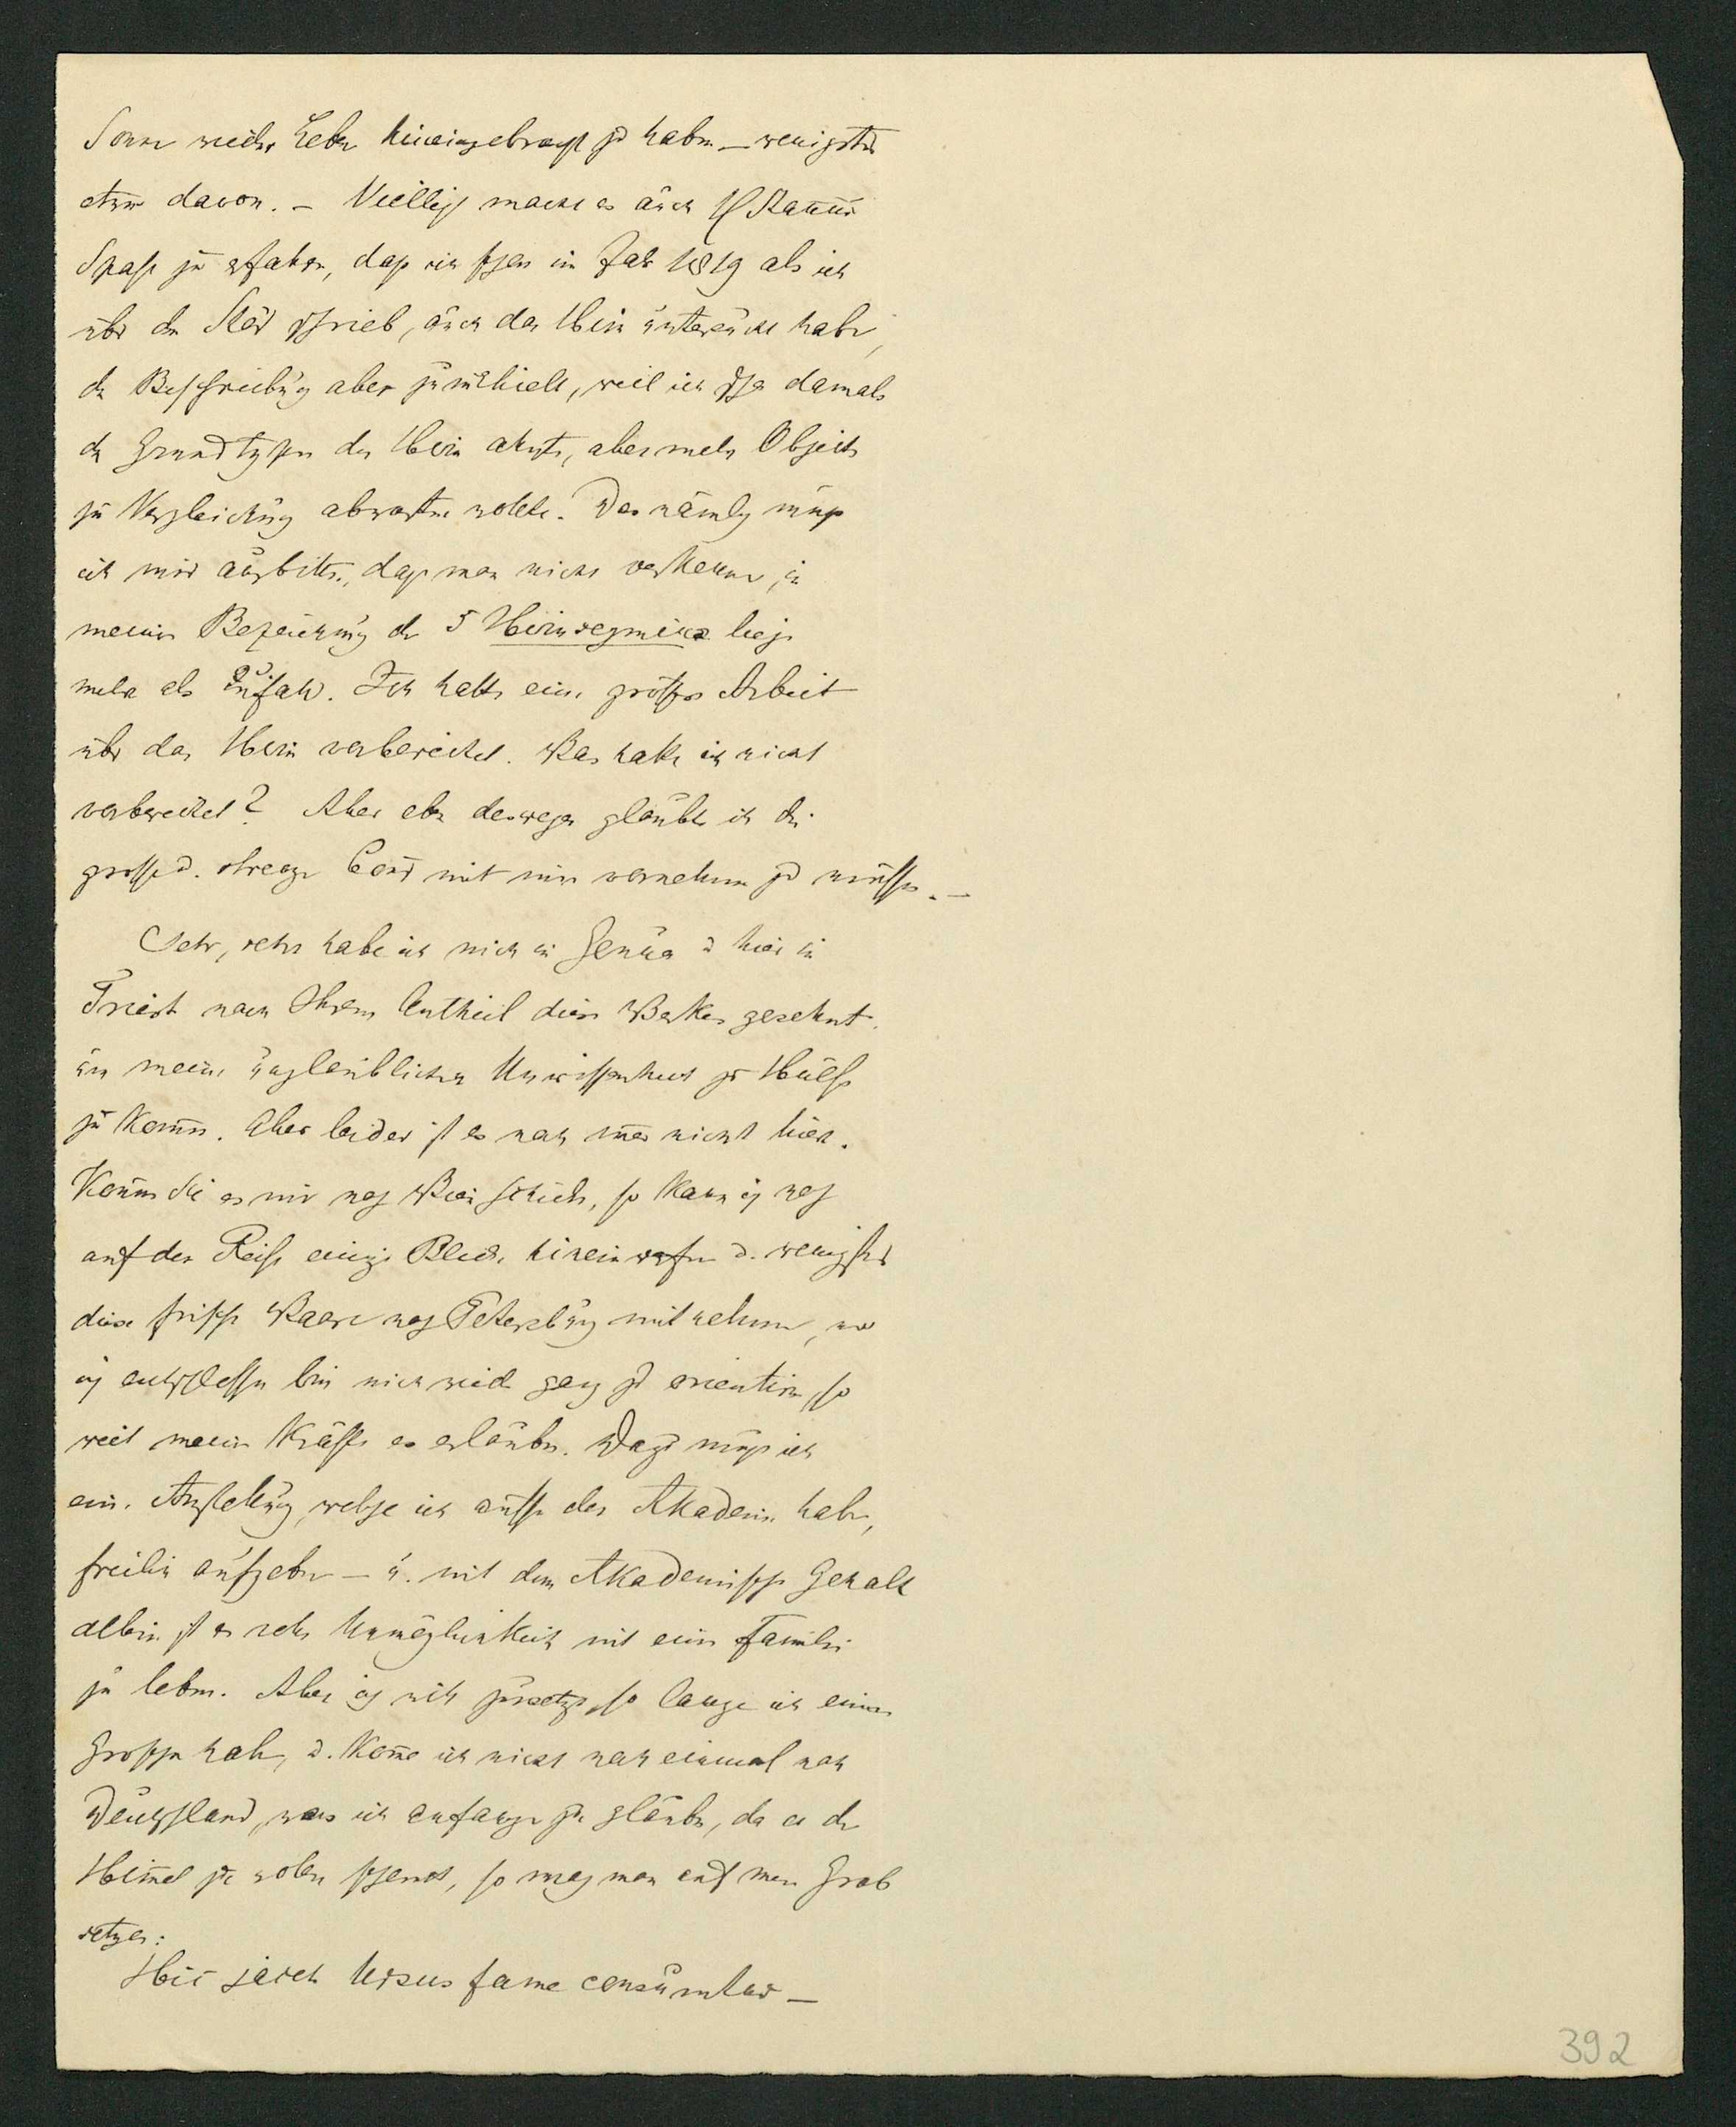 Sonne wieder Leben hineingebracht zu haben – wenigstens
etwas davon. – Vielleicht macht es auch H Stannius
Spass zu erfahren, dass ich schon im Jahr 1819 als ich
über den Stör schrieb, auch das Hirn untersucht habe,
die Beschreibung aber zurückhielt, weil ich schon damals
den Grundtypus des Hirns ahnte, aber mehr Objecte
zur Vergleichung abwarten wollte. Das nämlich muss
ich mir ausbitten, dass man nicht verkenne, in
meiner Bezeichnung der 5 Hirnsegmente liege
mehr als Zufall. Ich hatte eine grössere Arbeit
über das Hirn vorbereitet. Was hatte ich nicht
vorbereitet? Aber eben deswegen glaubte ich die
grosse u. strenge Cour mit mir vornehmen zu müssen. –
Sehr, sehr habe ich mich in Genua u hier in
Triest nach Ihrem Antheil dieses Werkes gesehnt,
um meiner unglaublichen Unwissenheit zu Hülfe
zu kommen. Aber leider ist es noch immer nicht hier.
Können Sie es mir nach Wien schicken, so kann ich noch
auf der Reise einige Blicke hineinwerfen u. wenigstens
diese frische Waare nach Petersburg mitnehmen, wo
ich entschlossen bin mich wieder ganz zu orientiren, so
weit meine Kräfte es erlauben. Dazu muss ich
eine Anstellung, welche ich ausser der Akademie habe,
freilich aufgeben – u. mit dem Akademischen Gehalt
allein ist es reine Unmöglichkeit mit einer Familie
zu leben. Aber ich will zusetzen, so lange ich einen
Groschen habe, u. komme ich nicht noch einmal nach
Deutschland, was ich anfange zu glauben, da es der
Himmel so zu wollen scheint, so mag man auf mein Grab
setzen:
Hic jacet Ursus fame consumtus –
392